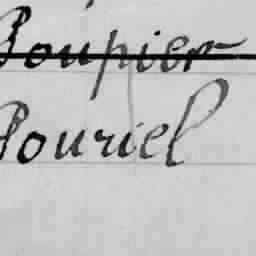 Poupier
Pouriel